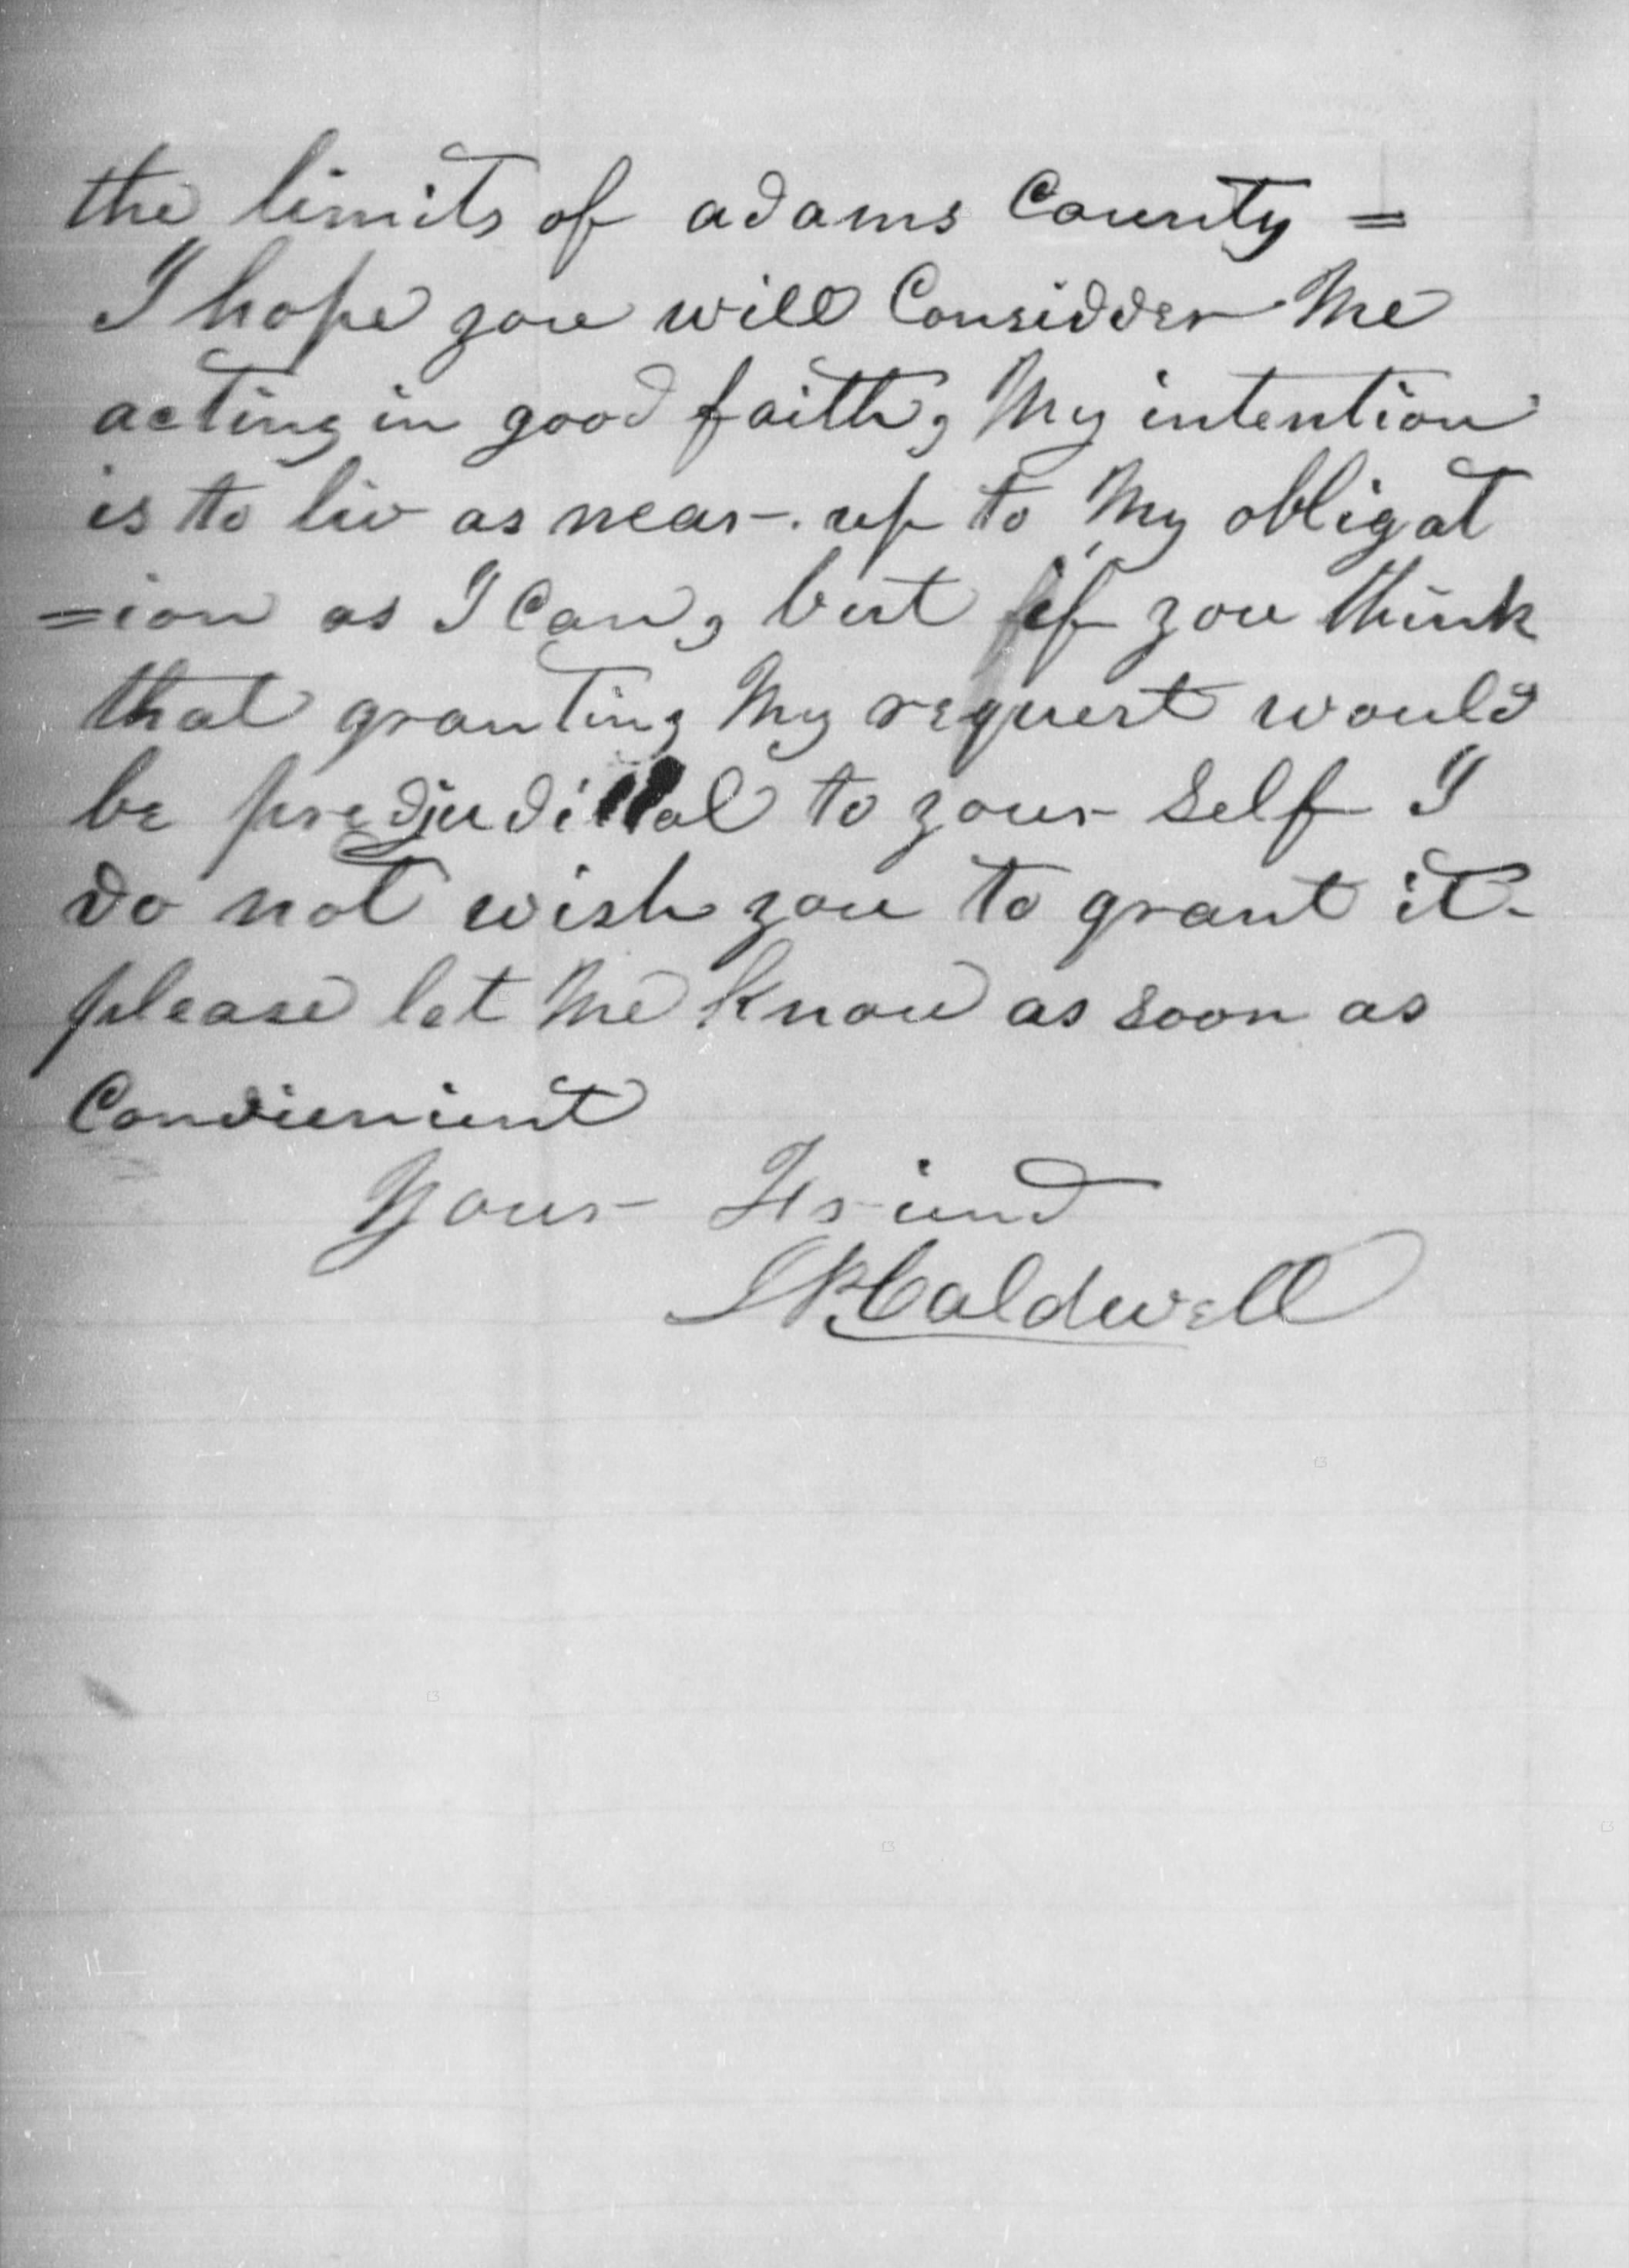 the limits of adams County =
I hope you will Considder Me
acting in good faith, My intention
is to liv as near up to My obligat
=ion as I Can, but if you think
that granting My request would
be to your self I
do not wish you to grant it-
please let Me Know as soon as
Convienient
Your Friend
Caldwell